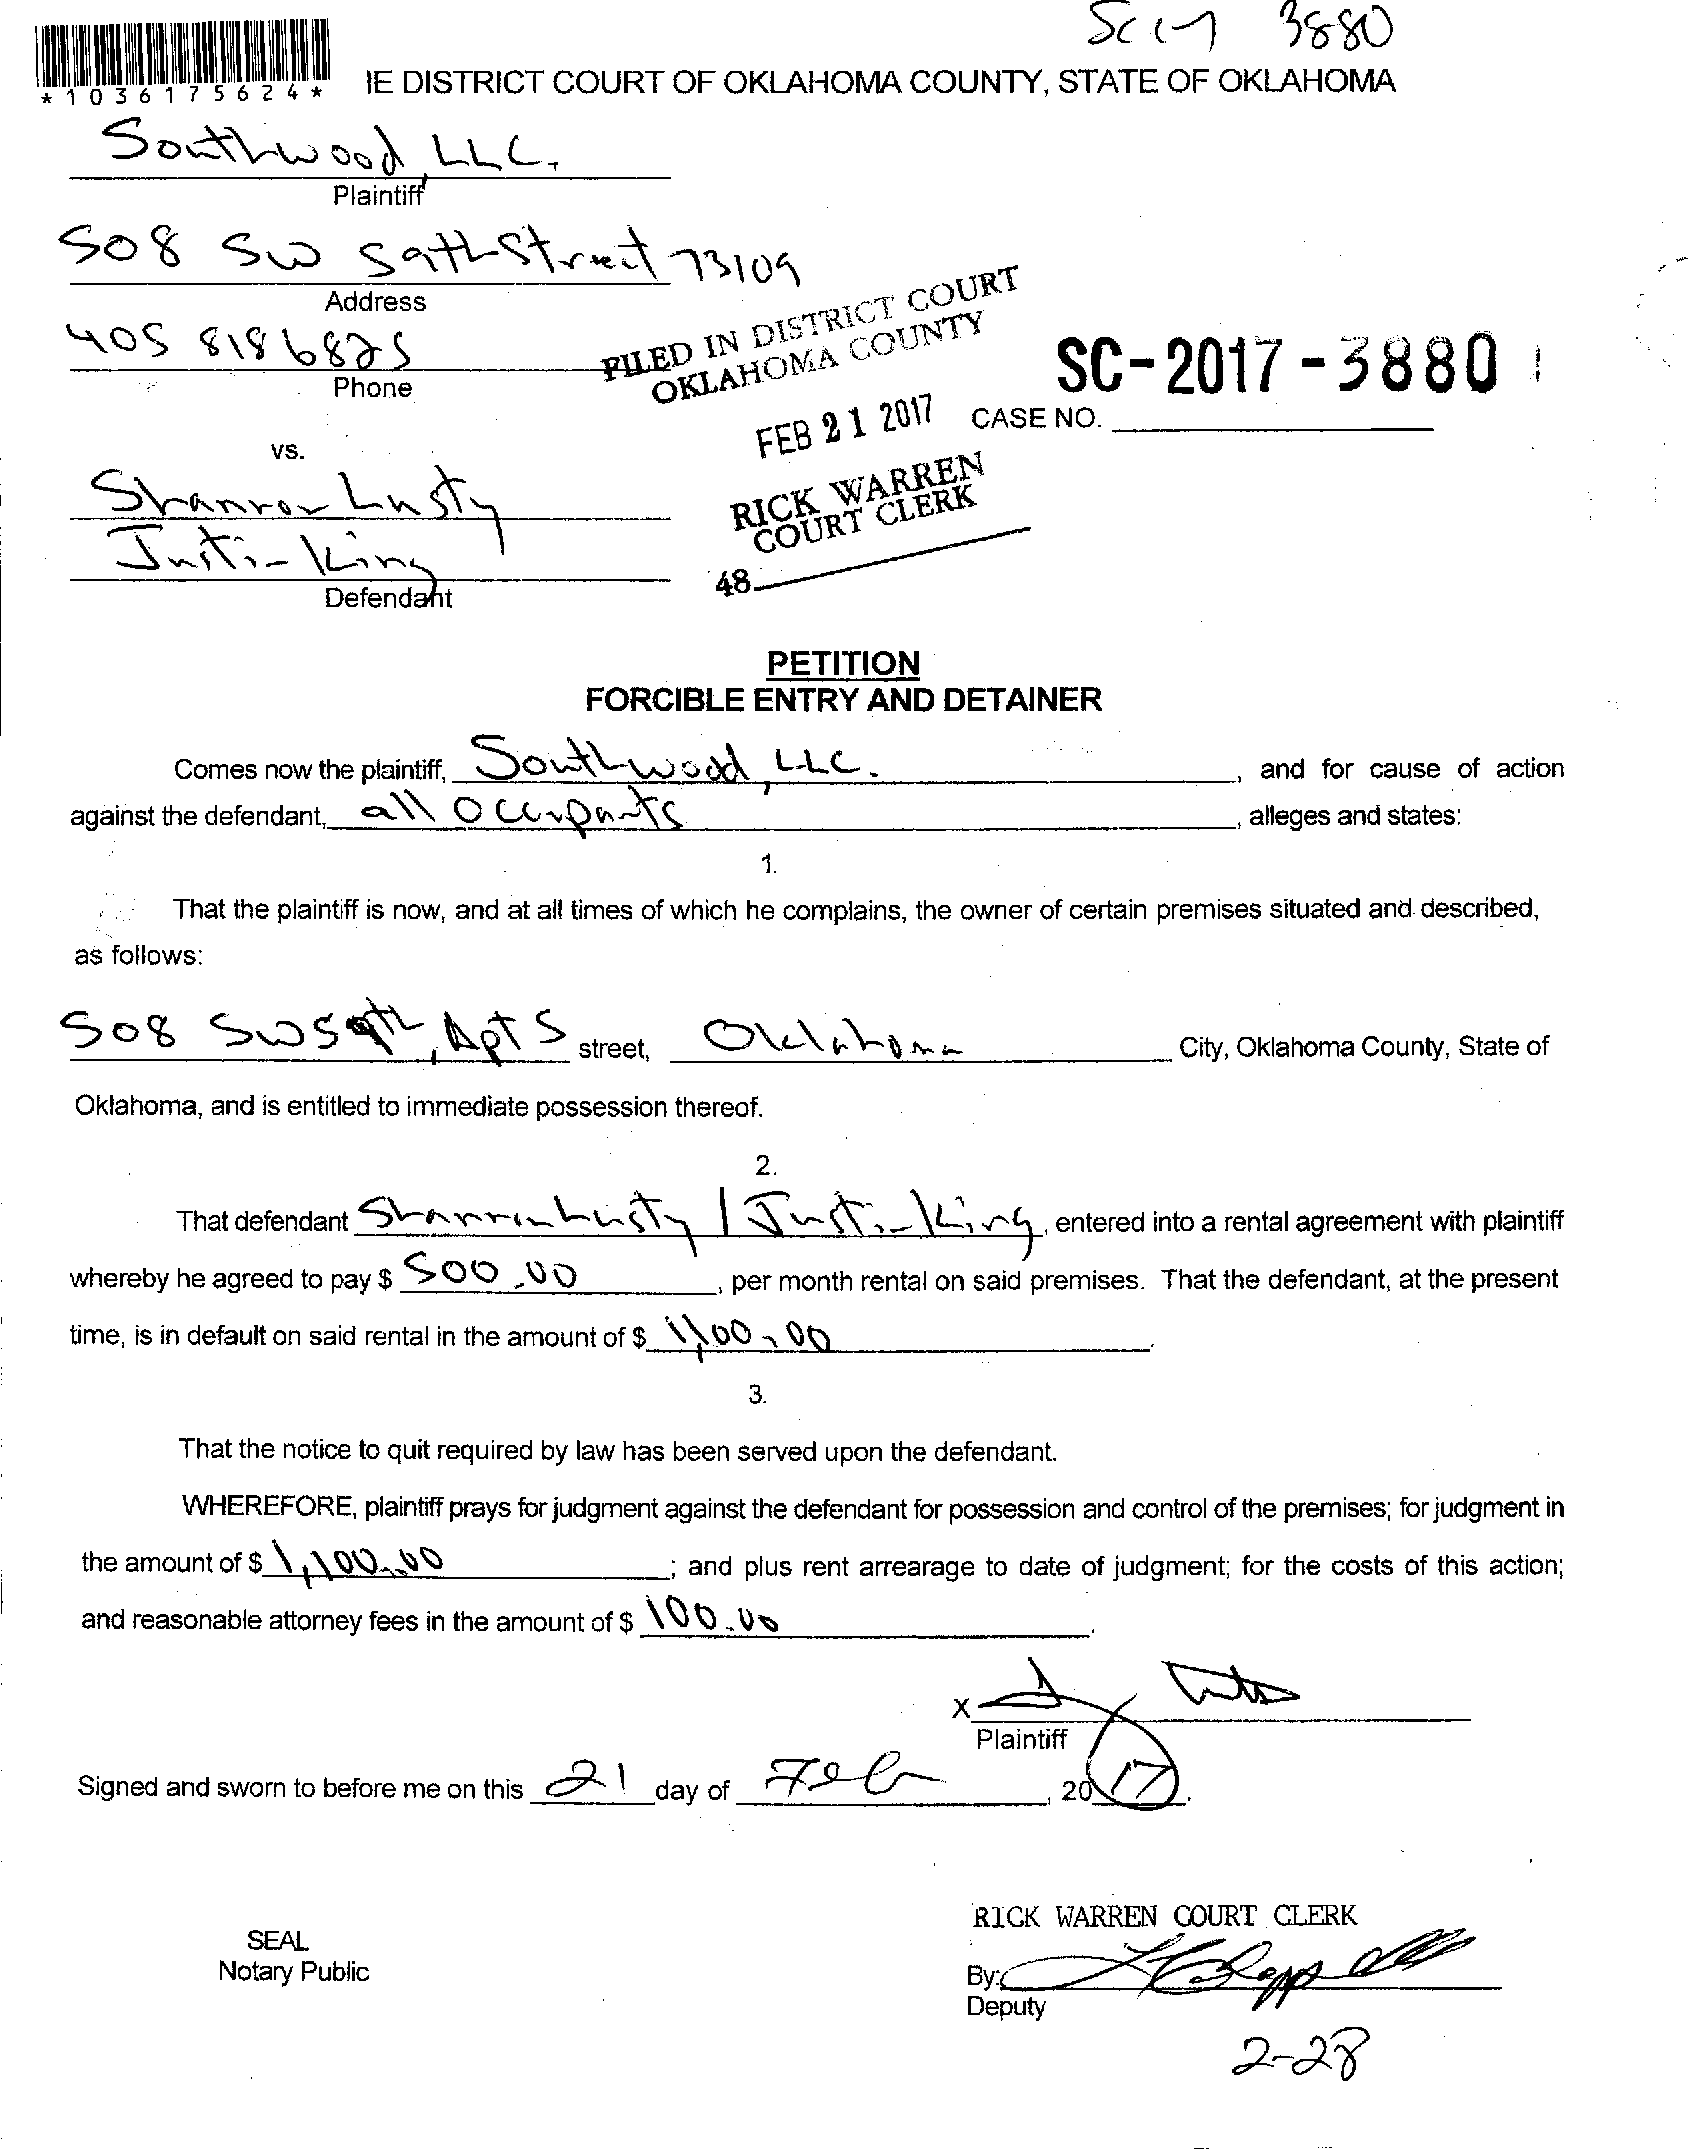 SC 17 3880
*1036175624*
IE DISTRICT COURT OF OKLAHOMA COUNTY, STATE OF OKLAHOMA
Southwood, LLC.
Plaintiff
508 SW 59th Street 73109
Address
405 818 6825
Phone
FILED IN DISTRICT COURT
OKLAHOMA COUNTY
FEB 21 2017
RICK WARREN
COURT CLERK
48
SC-2017-3880
CASE NO.
vs.
Shannon Lusty
Justin King
Defendant
PETITION
FORCIBLE ENTRY AND DETAINER
Comes now the plaintiff, Southwood, LLC. , and for cause of action
against the defendant, all Occupants , alleges and states:
1.
That the plaintiff is now, and at all times of which he complains, the owner of certain premises situated and described,
as follows:
508 SW 59th, Apt 5 street, Oklahoma City, Oklahoma County, State of
Oklahoma, and is entitled to immediate possession thereof.
2.
That defendant Shannon Lusty / Justin King, entered into a rental agreement with plaintiff
whereby he agreed to pay $ 500.00 , per month rental on said premises. That the defendant, at the present
time, is in default on said rental in the amount of $ 1,100.00 .
3.
That the notice to quit required by law has been served upon the defendant.
WHEREFORE, plaintiff prays for judgment against the defendant for possession and control of the premises; for judgment in
the amount of $ 1,100.00 ; and plus rent arrearage to date of judgment; for the costs of this action;
and reasonable attorney fees in the amount of $ 100.00 .
X
Plaintiff
Signed and sworn to before me on this 21 day of Feb , 2017.
SEAL
Notary Public
RICK WARREN COURT CLERK
By:
Deputy
2-28